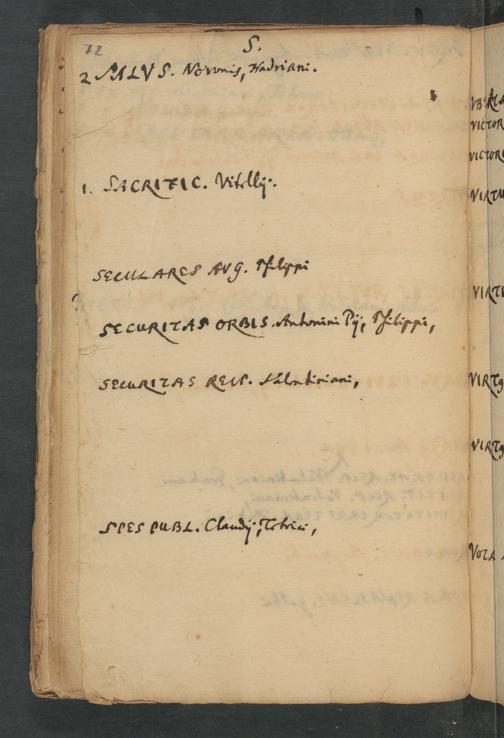 72
S.
2 SALVS. Neronis, Hadriani.
1. SACRIFIC. Vitellij.
SECULARES AVG. Philippi
SECURITAS ORBIS. Antonini Pij, Philippi,
SECURITAS REIP. Valentiniani,
SPES PUBL. Claudij, Tetrici,
VICTOR
VICTORI
VIRTU
VIRTU
VIRTQ
VIRTQ
VOTA